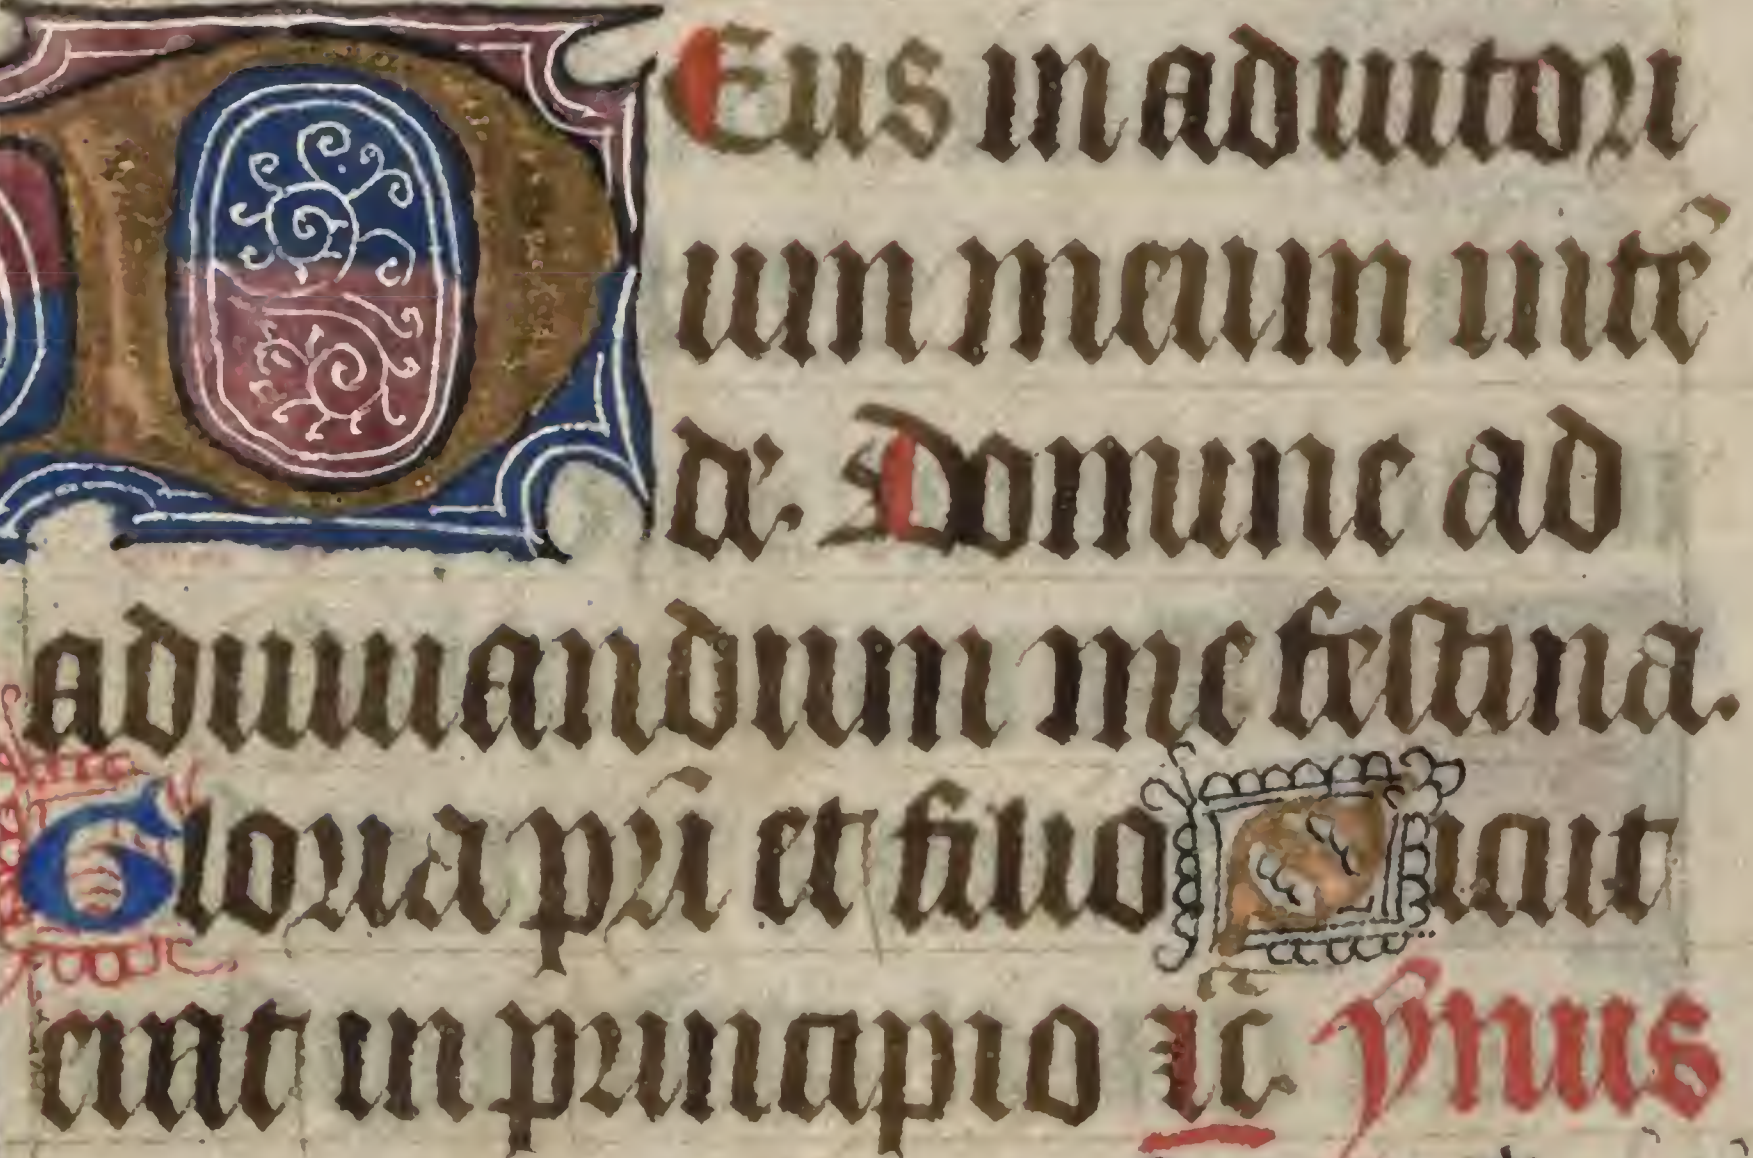 DEus in adiutori
um meum inte
de. Domine ad
adiuuandum me festina.
Gloria pri et filio Sicut
erat in principio zc ymnus